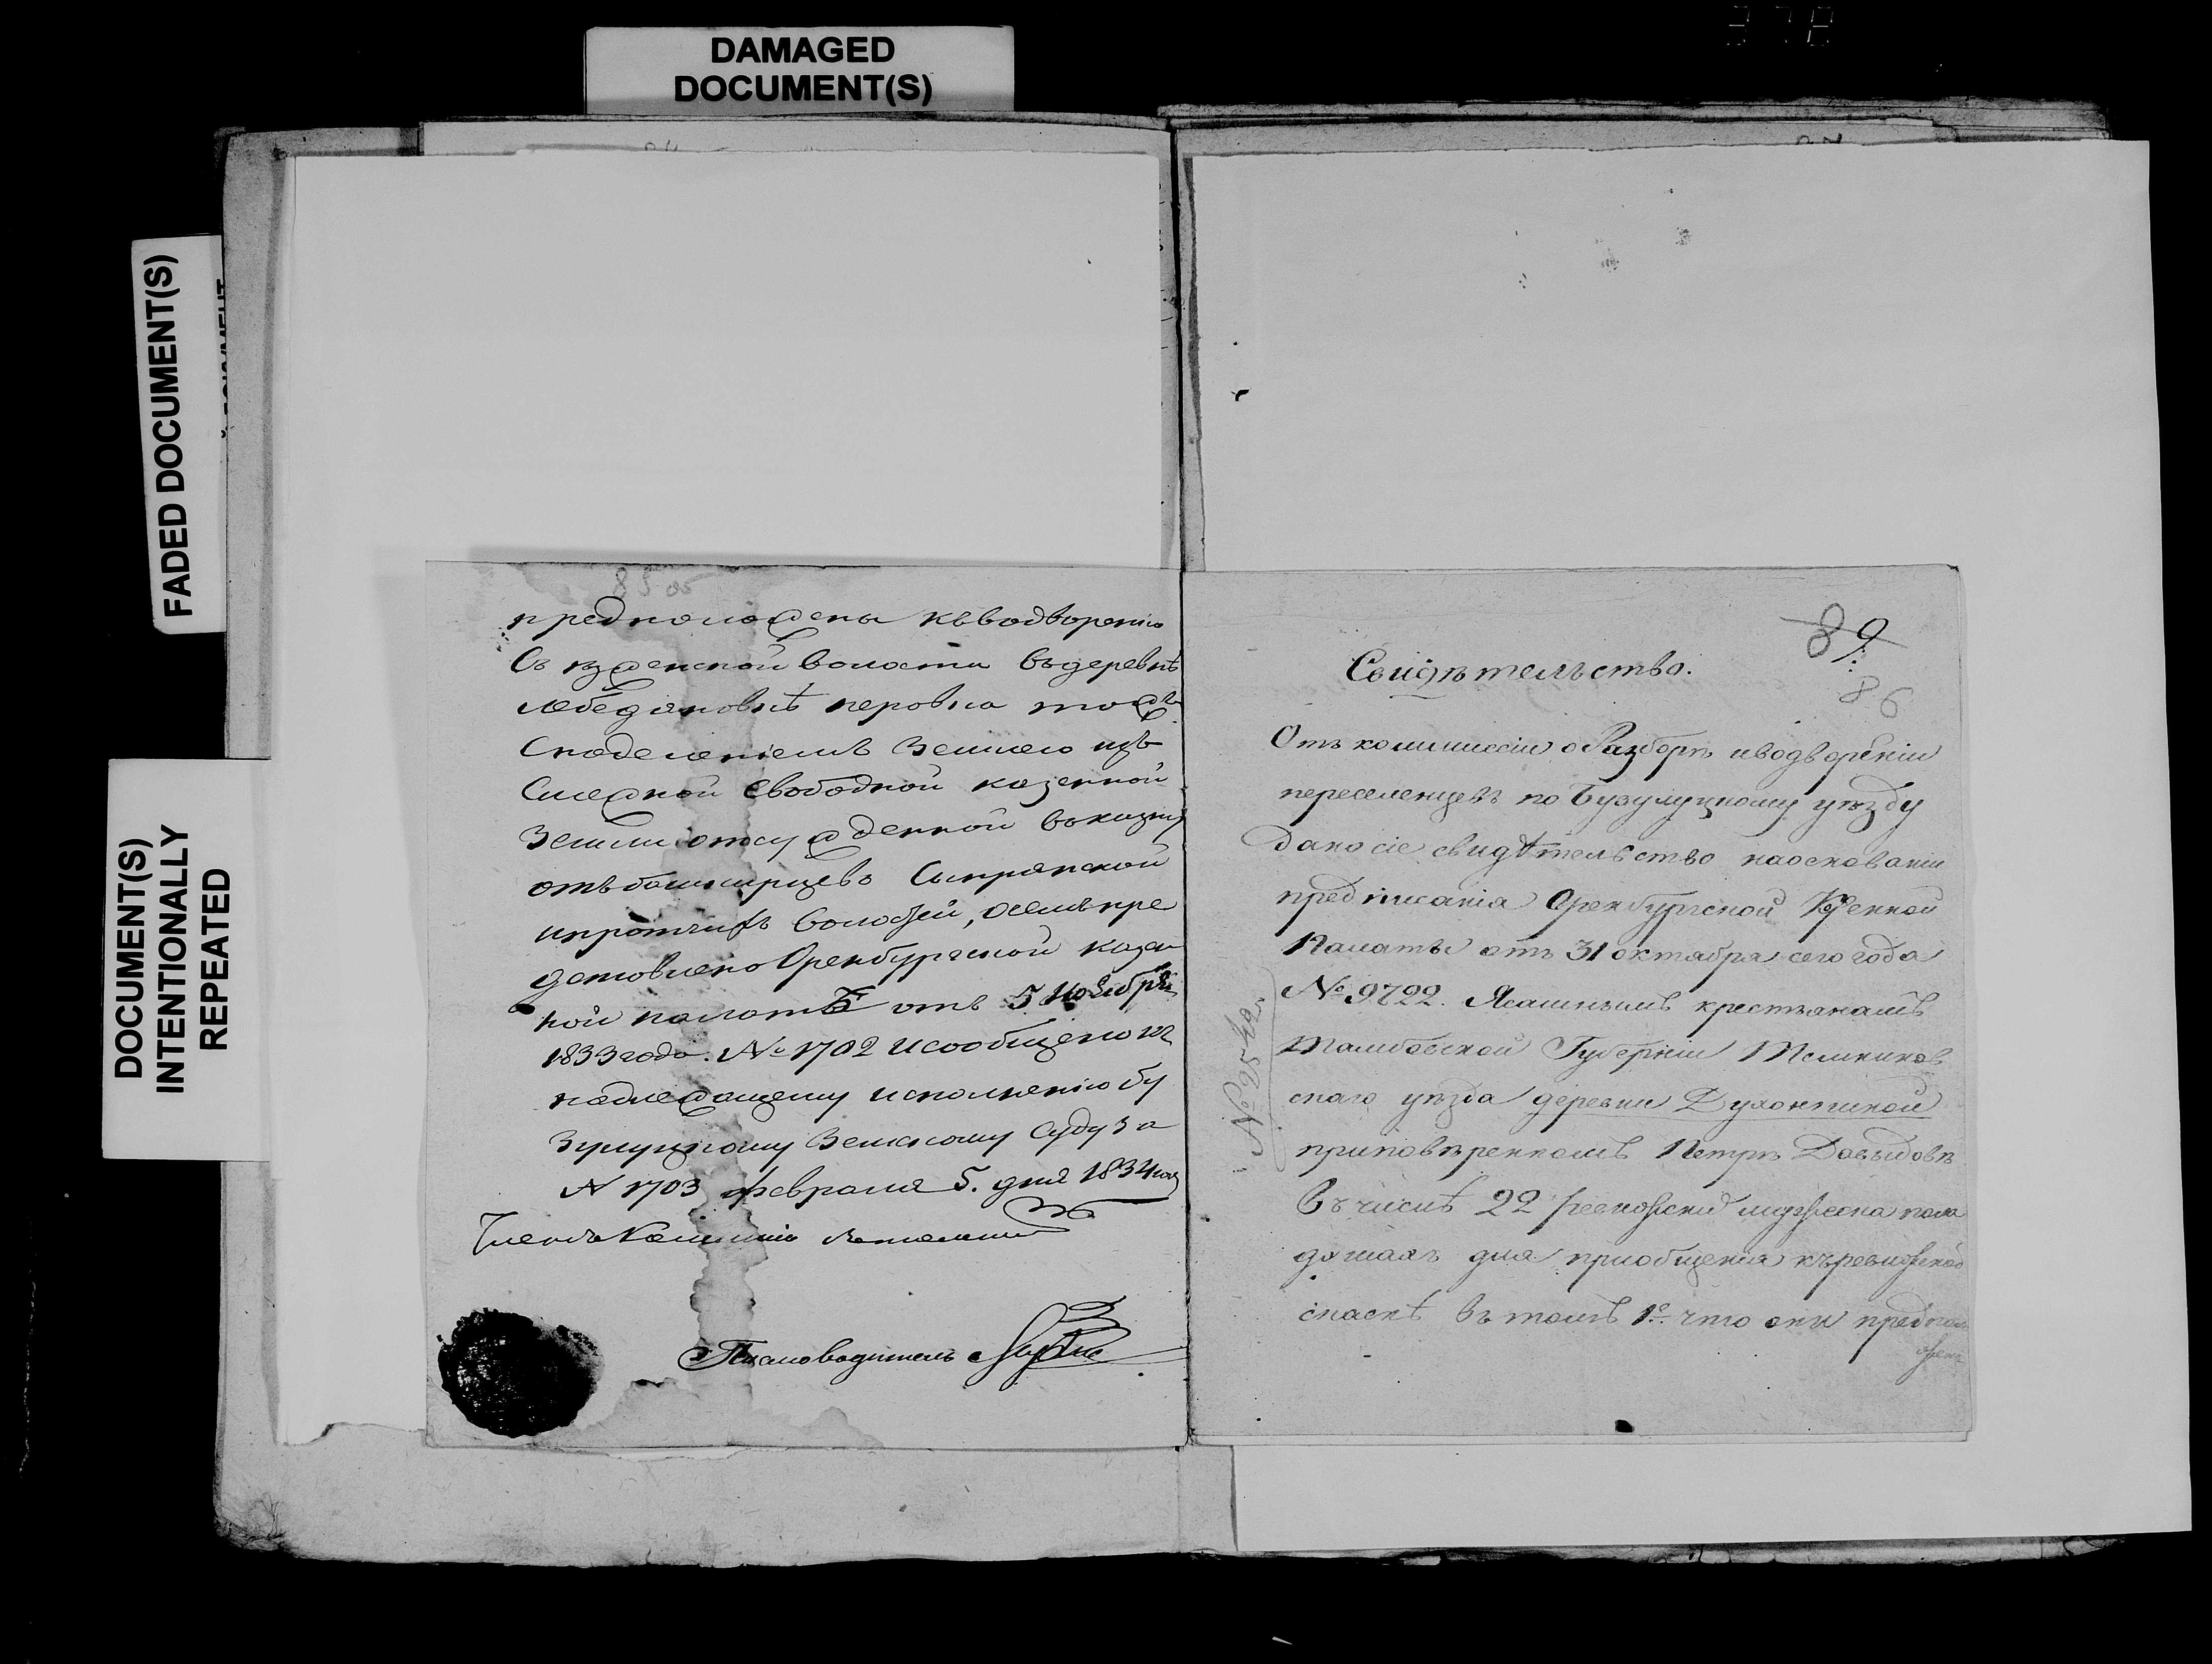 DAMAGED
DOCUMENT(S)
FADED DOCUMENT(S)
DOCUMENT(S)
INTENTIONALLY
REPEATED
85 об
предположены къ водворенію
волости въ деревнѣ
первыя
Снаделеніемъ землею изъ
Смежной свободной казенной
земли отсужденной въ казну
отъ башкирцевъ
и протчихъ волостей, о чемъ пре
доставлено Оренбургской казен
ной палатѣ отъ 5 Ноября
1833 года. № 1702 и сообщено къ
надлежащему исполненію бу
зулуцкому Земскому Суду за
N 1703 февраля 5. дня 1834 года
Членъ Коммисіи
Писмоводитель
89
86
Свидѣтельство.
Отъ коммиссіи о Разборѣ и водвореніи
переселенцевъ по Бузулуцкому уѣзду
дано сіе свидѣтельство на основаніи
предписанія Оренбургской Казенной
Палаты отъ 31 октября сего года
№ 9722. Ясашнымъ крестьянамъ
Тамбовской Губерніи Темников
скаго уѣзда деревни
приповѣренномъ Петрѣ Давыдовѣ
въ числѣ 22 ревижски мужеска пола
душахъ для пріобщенія къ ревижской
скаскѣ въ томъ 1е. что они предпол
ожен